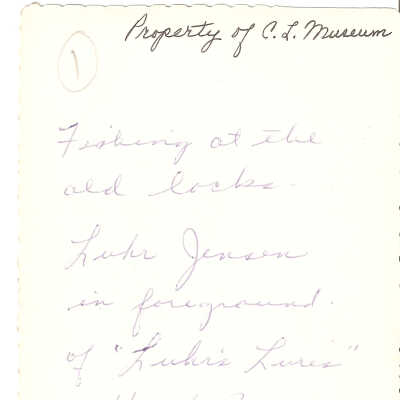 Property of C. L. Museum
1
Fishing at the
old locks.
Luhr Jensen
in foreground.
of "Luhr's Lures"